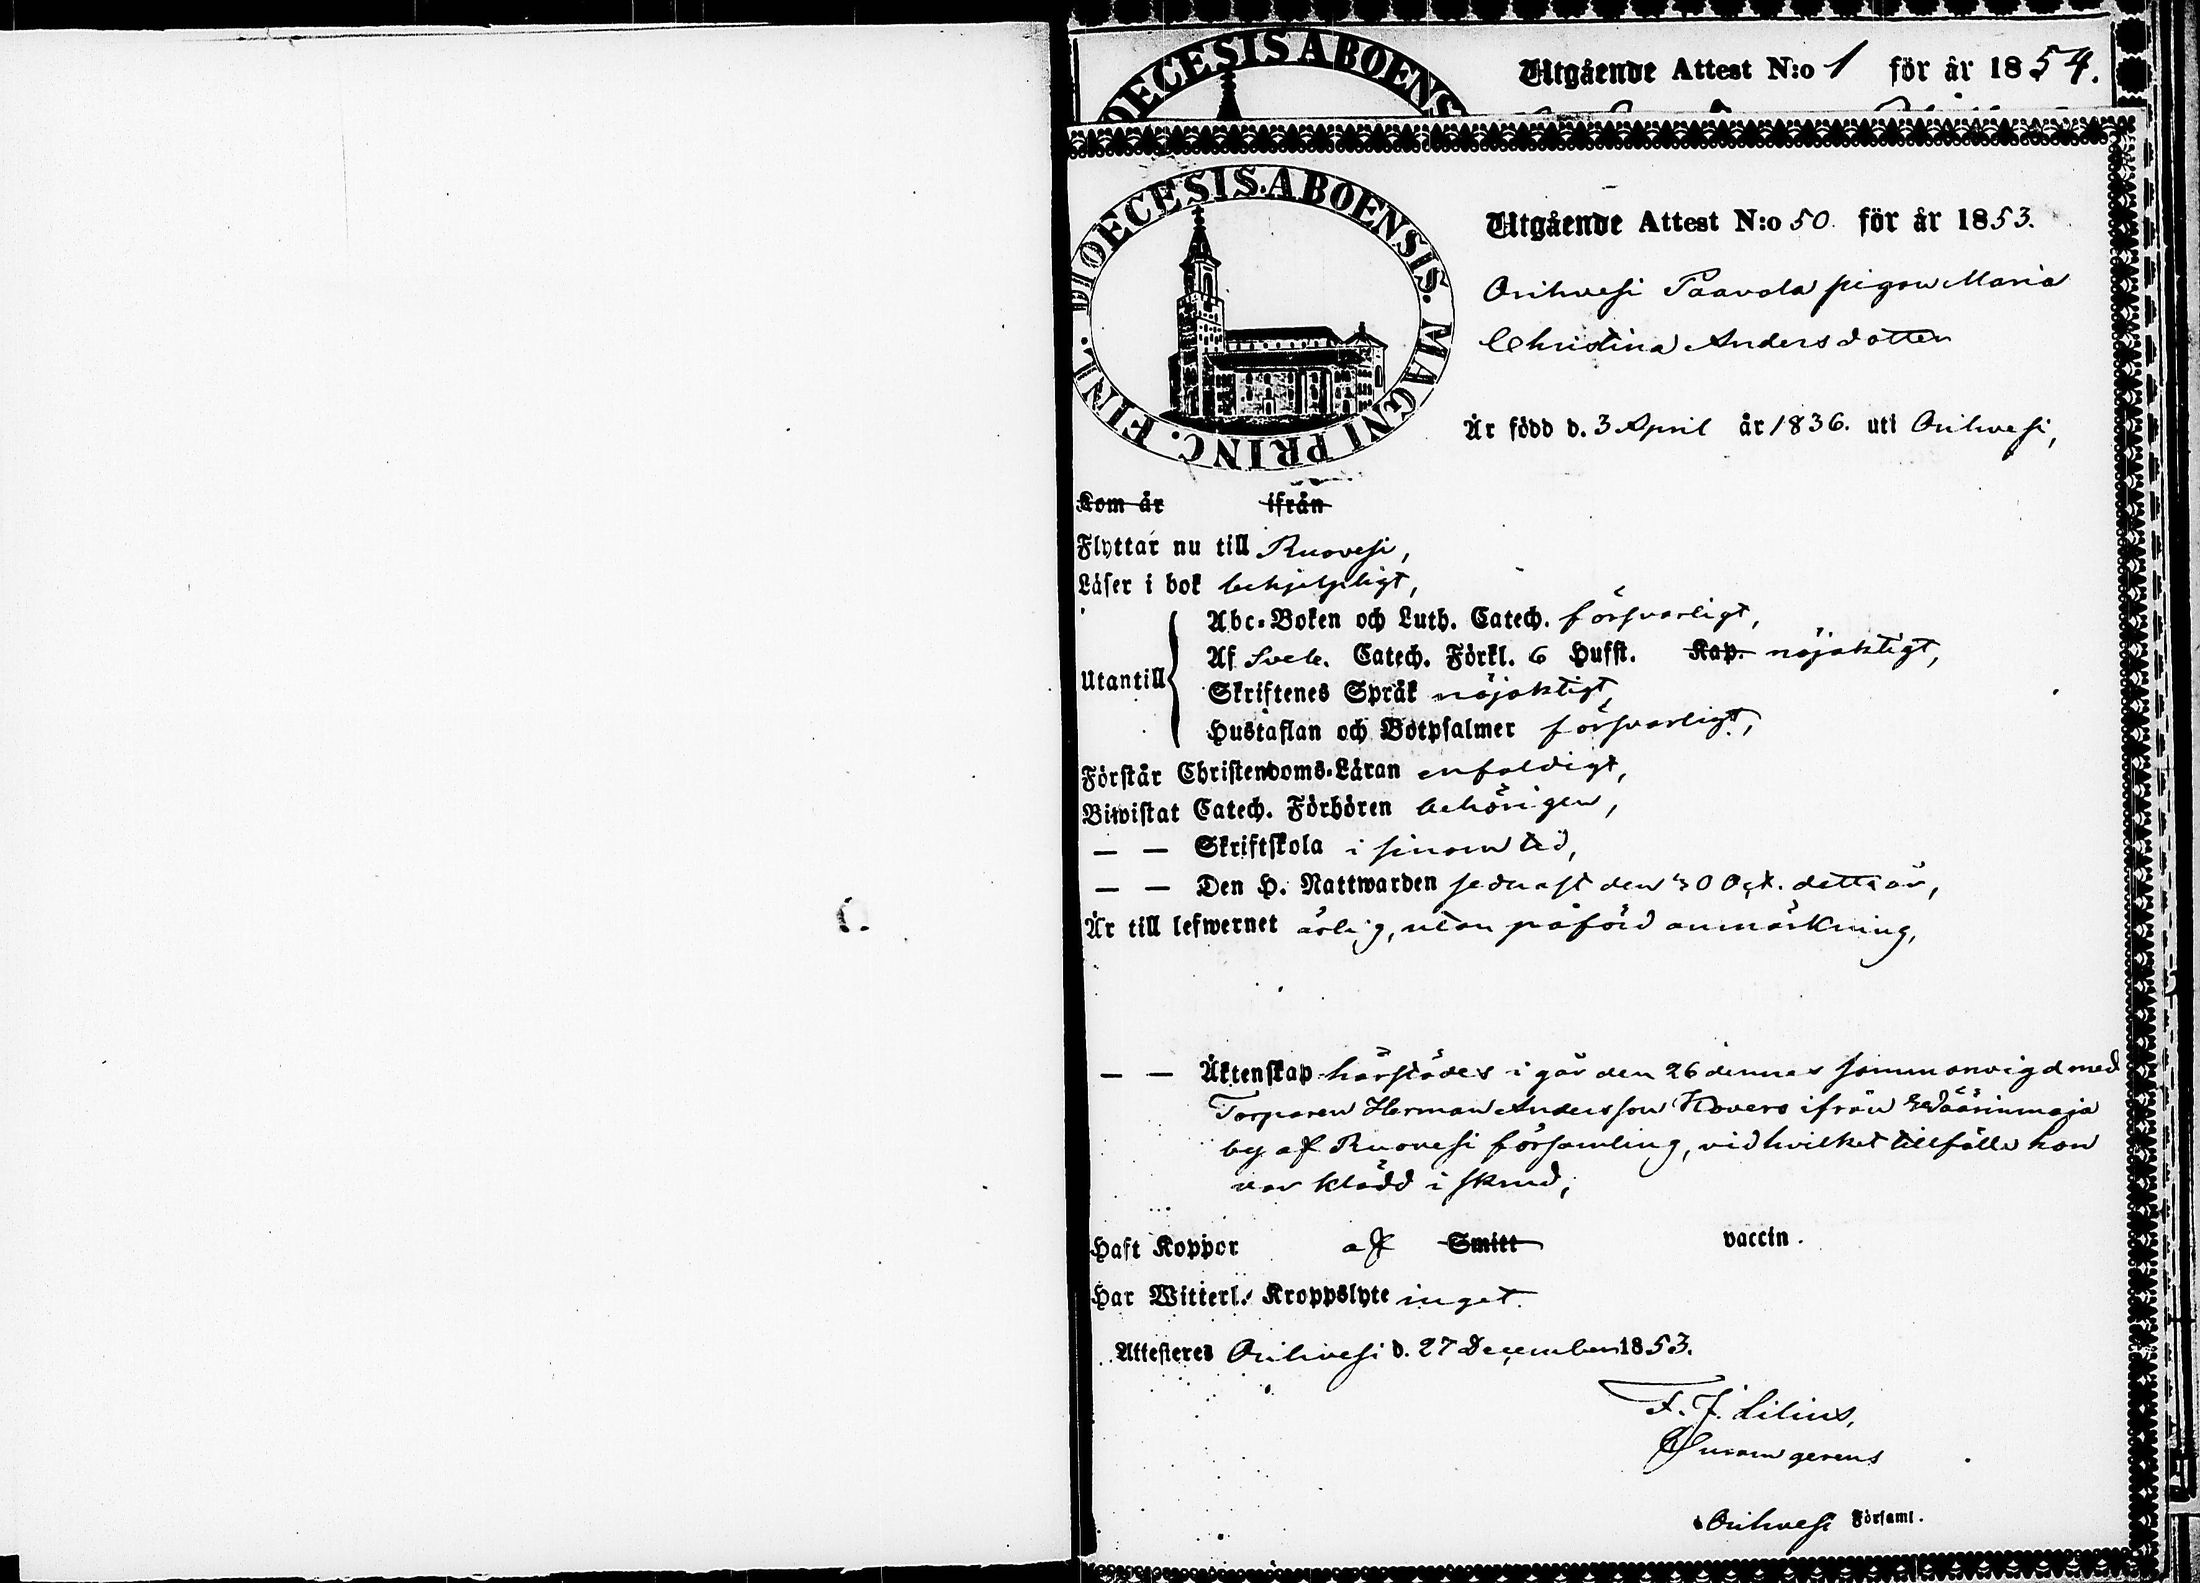 DIOECESIS ABOENS
Utgående Attest N:o 1 för år 1854.
DIOECESIS. ABOENSIS. MAGNI PRINC. FINL.
Utgående Attest N:o 50 för år 1853.
Orihvesi Paavola pigan Maria
Christina Andersdotter
Är född d. 3 April år 1836. uti Orihvesi,
Kom år ifrån
Flyttar nu till Ruovesi,
Läser i bok behjelpligt,
Utantill
Abc-Boken och Luth. Catech. försvarligt,
Af Sveb. Catech. Förkl. 6 Hufst. Kap. nöjaktigt,
Skriftenes Språk nöjaktigt,
Hustaflan och Botpsalmer försvarligt,
Förstår Christendoms-Läran enfaldigt,
Biwistat Catech. Förhören behörigen,
— — Skriftskola i sinom tid,
— — Den H. Nattwarden sednast den 30 Oct. detta år,
Är till lefwernet ärlig, utan påförd anmärkning,
— — Äktenskap härstädes i går den 26 dennes sammanvigd med
Torparen Herman Andersson Kovero ifrån Wäärinmaja
by af Ruovesi församling, vid hvilket tillfälle hon
var klädd i skrud,
Haft Koppor af Smitt vaccin.
Har Witterl. Kroppslyte inget.
Attesteres Orihvesi d. 27 December 1853.
F. J. Lilius,
Curam gerens
Orihvesi Församl.